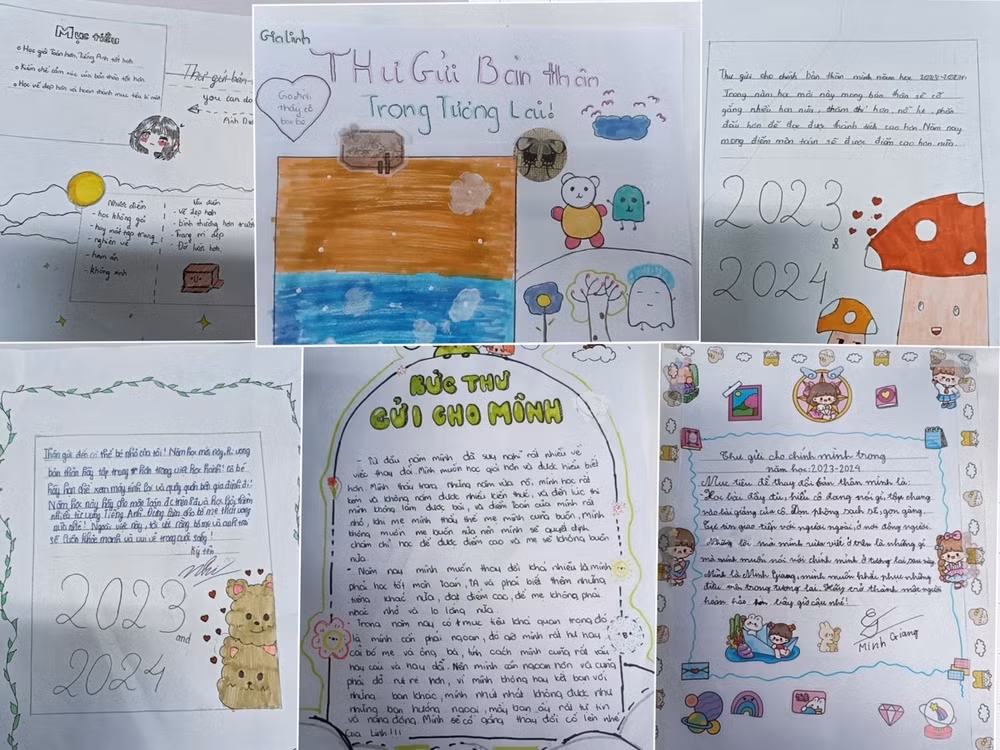 Mục tiêu
Học giỏi Toán hơn, Tiếng Anh tốt hơn
Kiềm chế cảm xúc của bản thân tốt hơn
Học vẽ đẹp hơn và hoàn thành mục tiêu
Thư gửi bản
you can do
Nhược điểm
- học không giỏi
- hay mất tập trung
- nghiện vẽ
- ham ăn
- không xinh
Ưu điểm
- vẽ đẹp hơn
- bình thường hơn trước
- Trang trí đẹp
- Đỡ lười hơn
Gia Linh
Thư Gửi Bản thân
Trong Tương Lai!
Thư gửi cho chính bản thân mình năm học
Trong năm học mới này mong bản thân sẽ cố
gắng nhiều hơn nữa, chăm chỉ hơn, nỗ lực, phấn
đấu hơn để đạt được thành tích cao hơn. Năm nay
mong điểm môn toán sẽ được điểm cao hơn nữa.
2023
&
2024
Thân gửi đến cô bé nhỏ của tôi! Năm học mới này, hi vọng
bản thân hãy tập trung hơn trong việc học hành! Cô bé
hãy hạn chế xem máy tính lại và quây quần bên gia đình đi!
Năm học này hãy cho môn Toán
từ vựng Tiếng Anh.
nữa nhé! Ngoài việc này, tôi rất mong bố mẹ và anh trai
sẽ luôn khỏe mạnh và vui vẻ trong cuộc sống!
Ký tên
Nhi
2023
and
2024
BỨC THƯ
GỬI CHO MÌNH
- Từ đầu năm mình đã suy nghĩ rất nhiều về
việc thay đổi. Mình muốn học giỏi hơn và được hiểu biết
hơn. Mình thấy trong những năm vừa rồi, mình học rất
kém và không nắm được nhiều kiến thức, và đến lúc thi
mình không làm được bài, và điểm toán của mình rất
nhỏ, khi mẹ mình thấy thế mẹ mình cũng buồn, Mình
không muốn mẹ buồn nữa nên mình sẽ quyết định
chăm chỉ học để được điểm cao và mẹ sẽ không buồn
nữa.
- Năm nay mình muốn thay đổi khá nhiều là mình
phải học tốt môn Toán, TA và phải biết thêm những
tiếng khác nữa, đạt điểm cao, để mẹ không phải
nhắc nhở và lo lắng nữa.
- Trong năm nay có 1 mục tiêu khá quan trọng đó
là mình cần phải ngoan, do giờ mình rất hư hay
cãi bố mẹ và ông, bà, tính cách mình cũng rất xấu
hay cáu và hay dỗi. Nên mình cần ngoan hơn và cũng
phải đỡ rụt rè hơn, vì mình không hay kết bạn với
những bạn khác, mình nhút nhát không được như
những bạn hướng ngoại, mấy bạn ấy rất tự tin
và năng động. Mình sẽ cố gắng thay đổi cố lên nhé
Gia Linh!!!
Thư gửi cho chính mình trong
năm học: 2023-2024
Mục tiêu để thay đổi bản thân mình là:
Học bài đầy đủ, hiểu cô đang nói gì, tập chung
vào bài giảng của cô. Dọn phòng sạch sẽ, gọn gàng.
Tự tin giao tiếp với người ngoài, ở nơi đông người.
Những lời mà mình vừa viết ở trên là những gì
mà mình muốn nói với chính mình ở tương lai sau này.
Mình là Minh Giang, mình muốn khắc phục những
điều trên trong tương lai. Hãy trở thành một người
hoàn hảo hơn bây giờ cậu nhé!
Minh Giang